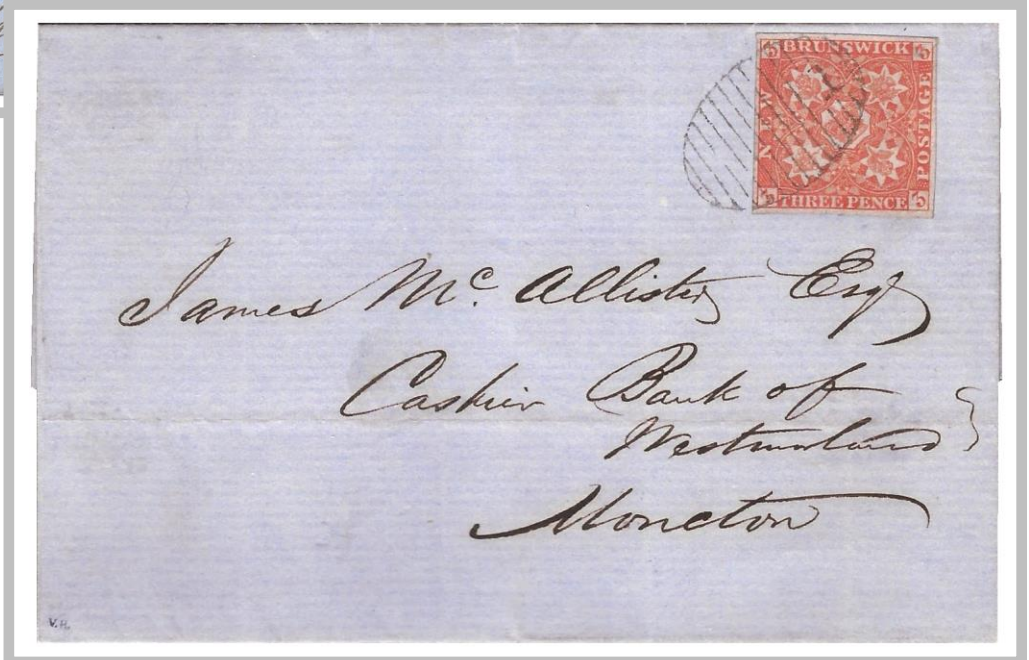 BRUNSWICK
NEW
POSTAGE
THREE PENCE
3 3
3 3
James Mc Allister Esq
Cashier Bank of
Westmorland
Moncton
V.H.